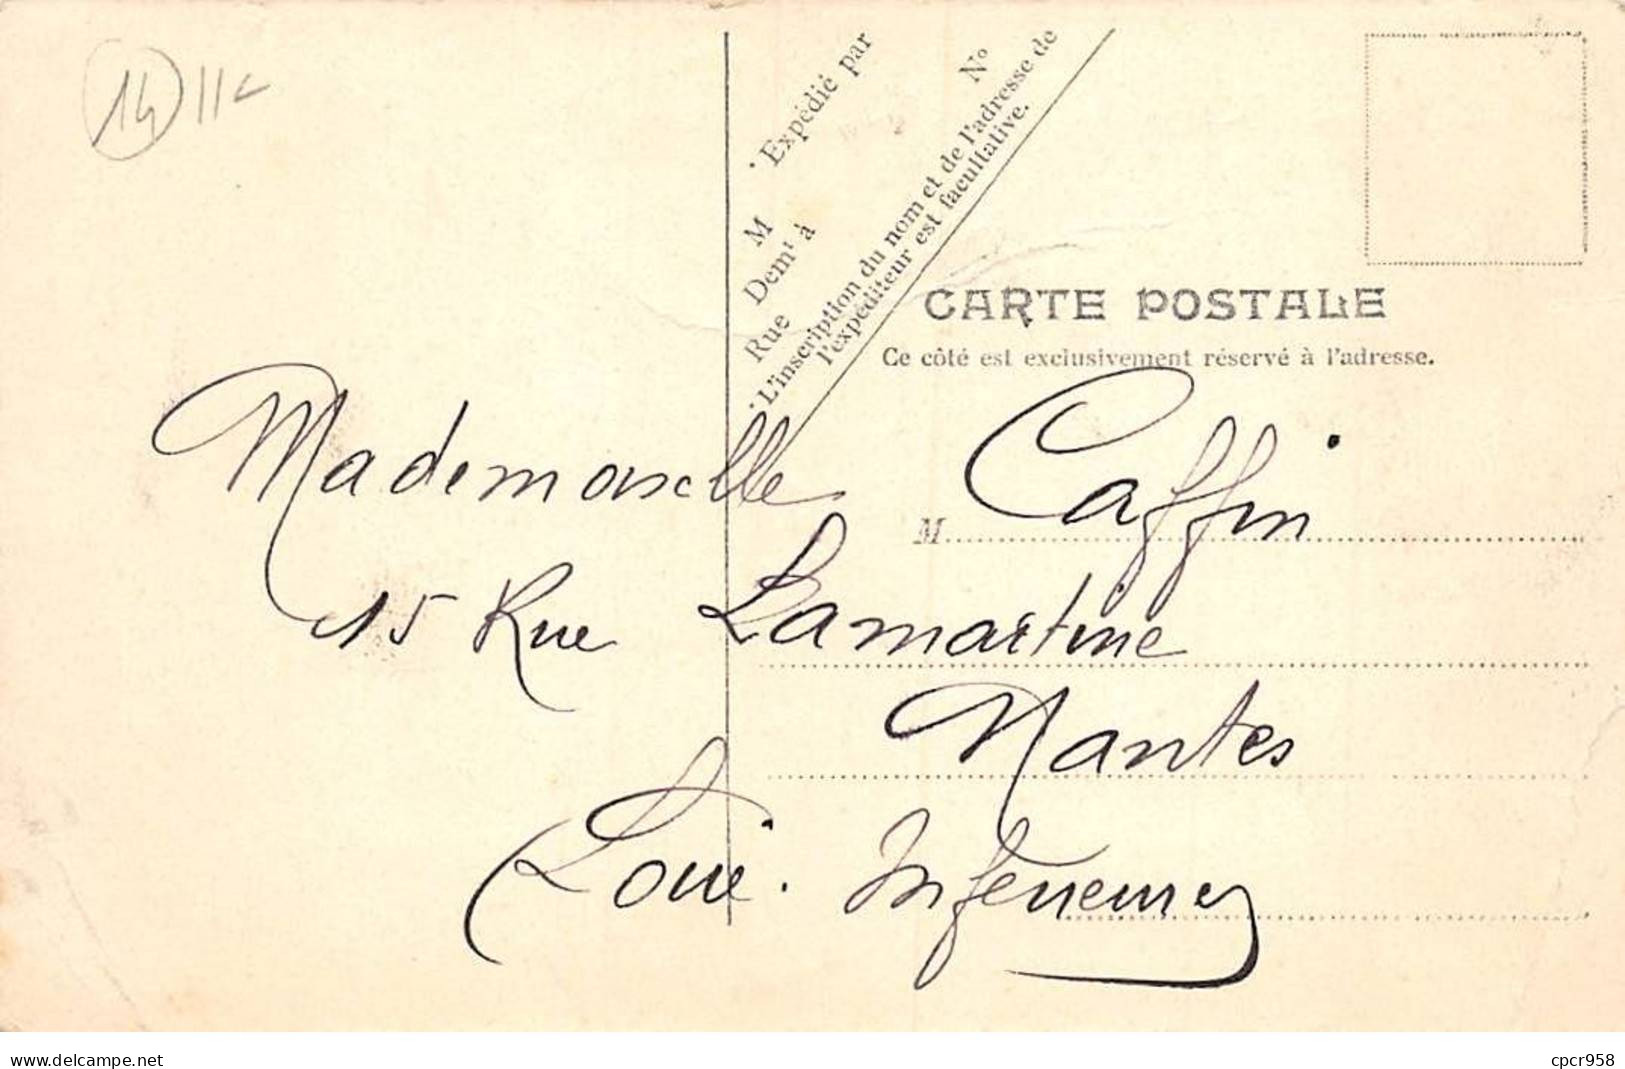 14 11
Expédié par
M
N°
Dem^t à
Rue
L'inscription du nom et de l'adresse de
l'expéditeur est facultative.
CARTE POSTALE
Ce côté est exclusivement réservé à l'adresse.
Mademoiselle M Caffin
15 Rue Lamartine
Nantes
Loire Inférieure
www.delcampe.net
cpcr958